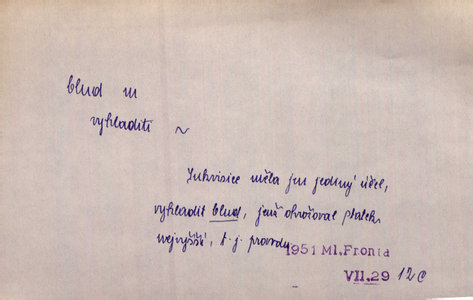 blud m
vyhladiti ~
Inkvisice měla jen jediný účel,
vyhladit blud, jenž ohrožoval statek
nejvyšší, t. j. pravdu
1951 Ml. Fronta
VII. 29 12c